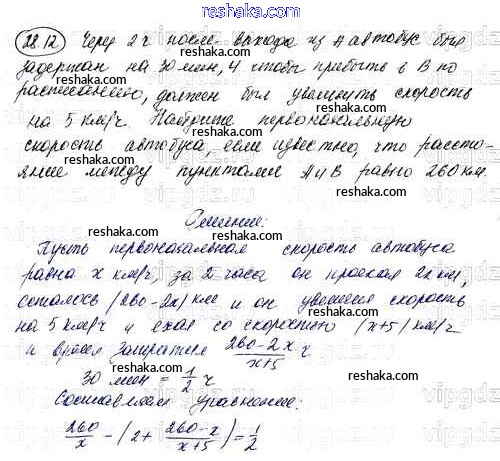 reshaka.com
28.12 Через 2 ч после выхода из А автобус был
задержан на 30 мин, ч. чтобы прибыть в В по
расписанию, должен был увеличить скорость
на 5 км/ч. Найдите первоначальную
скорость автобуса, если известно, что рассто-
яние между пунктами А и В равно 260 км.
Решение:
Пусть первоначальная скорость автобуса
равна х км/ч, за 2 часа он проехал 2х км,
осталось (260-2х) км и он увеличил скорость
на 5 км/ч и ехал со скоростью (х+5) км/ч
и время затратил \frac{260-2x}{x+5} ч
30 мин = \frac{1}{2} ч
Составляем уравнение:
\frac{260}{x} - (2 + \frac{260-x}{x+5}) = \frac{1}{2}
reshaka.com